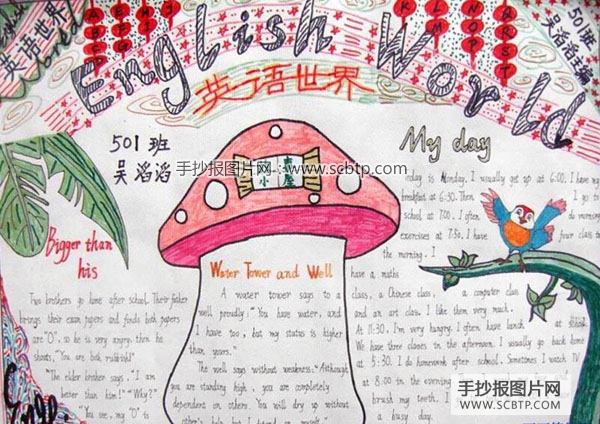 English World
英语世界
英语世界
501班
吴滔滔主编
501班
吴滔滔
手抄报图片网:www.scbtp.com
小
屋
My day
Today is Monday. I usually get up at 6:00. I have my
breakfast at 6:30. Then I go to
school at 7:00. I often do morning
exercises at 7:50. I have four class to
the morning. I
have a maths
class, a Chinese class, a computer class
and an art class. I like them very much.
At 11:30. I'm very hungry. I often have lunch at school.
We have three classes in the afternoon. I usually go back home
at 5:30. I do homework after school. Sometimes I watch TV
at 8:00 in the evening
brush my teeth. I
a busy day.
Bigger than
his
Two brothers go home after school. Their father
brings their exam papers and finds both papers
are "0", so he is very angry. then he
shouts, "You are both rubbish!"
"The elder brother says, "I am
better than him!" "Why?"
"You see, my "0" is
Water Tower and Well
A water tower says to a
well proudly: "You have water, and
I have too, but my status is higher
than yours."
The well says without weakness: "Although
you are standing high, you are completely
dependent on others. You will dry up without
others's help but I depend on myself."
手抄报图片网
WWW.SCBTP.COM